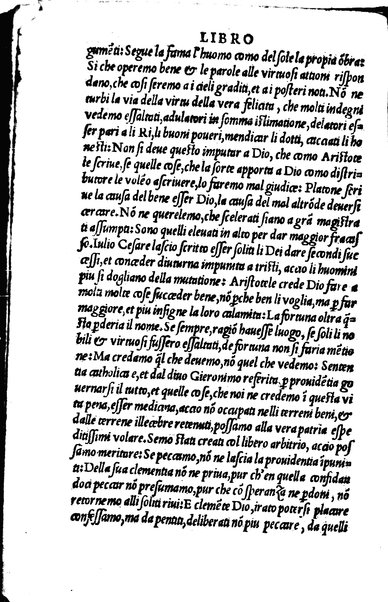 LIBRO
gumēti: Segue la fama l'huomo como del sole la propia ōbra:
Si che operemo bene & le parole alle virtuosi attioni rispon
dano, che cosi seremo a i cieli graditi, et a i posteri noti. Nō ne
turbi la via della virtu della vera felicita, che molti indegni
vedemo essaltati, adulatori in somma istimatione, delatori es-
ser pari a li Ri, li buoni poueri, mendicar li dotti, caccati li ho
nesti: Non si deue questo imputar a Dio, che como Aristote
le scriue, se quelle cose, che la sorte apporta a Dio como distri-
butore le voleō ascriuere, lo faremo mal giudice: Platone scri
ue la causa del bene esser Dio, la causa del mal altrōde deuersi
cercare. Nō ne querelemo, che scelerati siano a grā magistra
ti assumpti: Sono quelli eleuati in alto per dar maggior fracas
so. Iulio Cesare lascio scritto esser soliti li Dei dare secōdi suc
cessi, et conceder diuturna impunita a tristi, accao li huomini
piu si dogliano della mutatione: Aristotele crede Dio fare a
molti molte cose succeder bene, nō pche ben li voglia, ma p far
maggiore, et piu insigne la loro calamita: La fortuna oltra q̄-
sto pderia il nome. Se sempre, ragiō hauesse luogo, se soli li no
bili & virtuosi fussero essaltati, de fortuna non si faria mētio
ne: Ma credamo ql che deuemo, nō quel che vedemo: Senten
tia catholica e, et dal diuo Gieronimo referita, p prouidētia go
uernarsi il tutto, et quelle cose, che noi ne credemo i questa vi
ta pena, esser medicina, accao nō occupati nelli terreni beni, &
dalle terrene illecebre retenuti, possamo alla vera patria espe
ditissimi volare. Semo stati creati col libero arbitrio, accio pos
samo meriture: Se peccamo, nō ne lascia la prouidentia ipuni-
ti: Della sua clementia nō ne priua, pur ch'en quella confidati
doci peccar nō presumamo, pur che cō sperāza ne pdoni, nō
retornemo alli soliti riui: E clemēte Dio, irato potersi placare
confessamo, ma da pentiti, deliberati nō piu peccare, da quelli